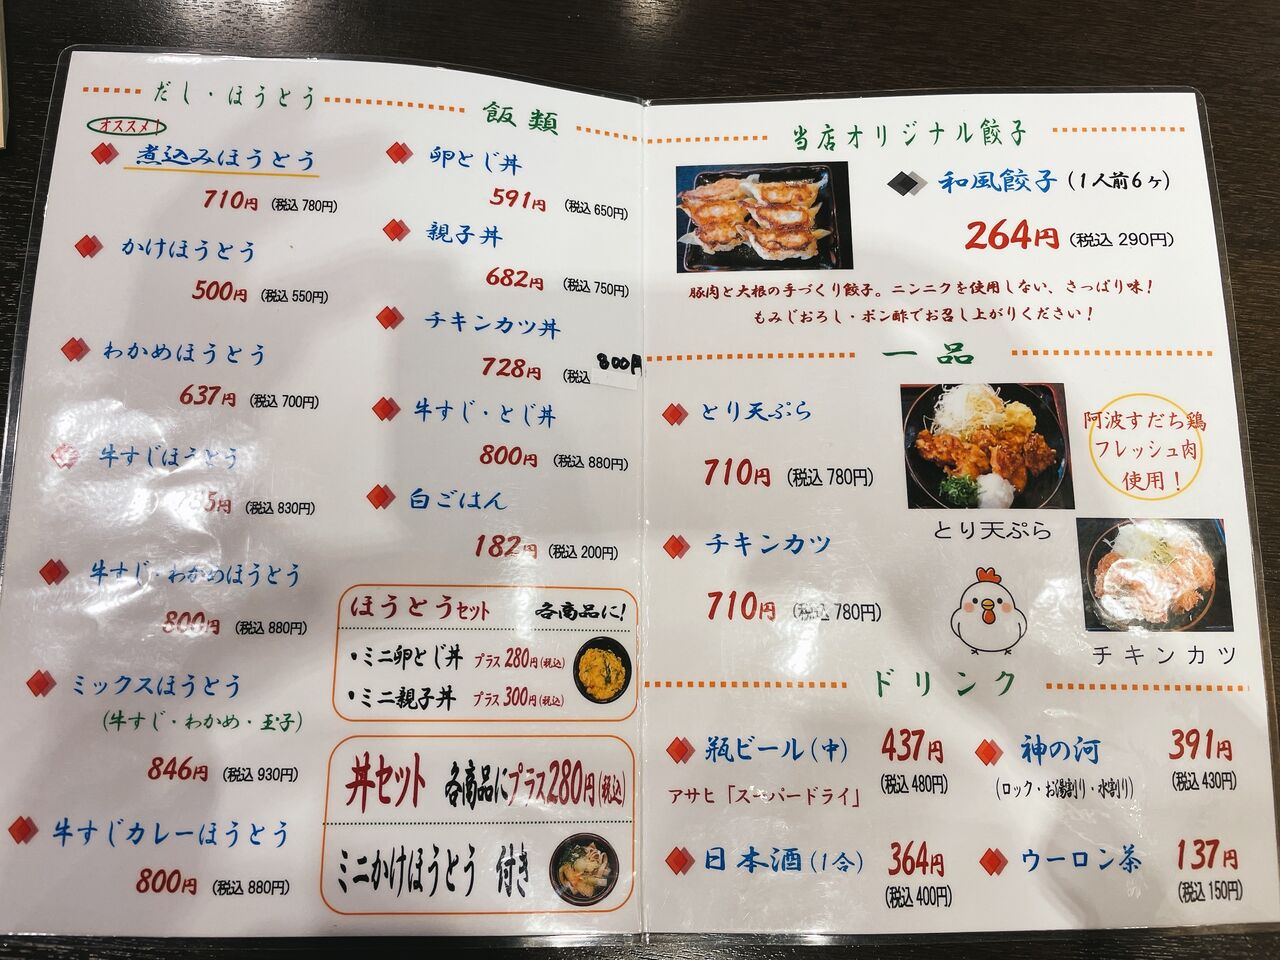 だし・ほうとう
オススメ!
煮込みほうとう
710円 (税込 780円)
かけほうとう
500円 (税込 550円)
わかめほうとう
637円 (税込 700円)
牛すじほうとう
(税込 830円)
牛すじ・わかめほうとう
800円 (税込 880円)
ミックスほうとう
(牛すじ・わかめ・玉子)
846円 (税込 930円)
牛すじカレーほうとう
800円 (税込 880円)
飯類
卵とじ丼
591円 (税込 650円)
親子丼
682円 (税込 750円)
チキンカツ丼
728円 (税込 800円
牛すじ・とじ丼
800円 (税込 880円)
白ごはん
182円 (税込 200円)
ほうとうセット 各商品に!
・ミニ卵とじ丼 プラス 280円(税込)
・ミニ親子丼 プラス 300円(税込)
丼セット 各商品にプラス280円(税込)
ミニかけほうとう 付き
当店オリジナル餃子
和風餃子(1人前6ヶ)
264円 (税込 290円)
豚肉と大根の手づくり餃子。ニンニクを使用しない、さっぱり味!
もみじおろし・ポン酢でお召し上がりください!
一品
とり天ぷら
710円 (税込 780円)
チキンカツ
710円 (税込 780円)
阿波すだち鶏
フレッシュ肉
使用!
とり天ぷら
チキンカツ
ドリンク
瓶ビール(中) 437円
(税込 480円)
アサヒ「スーパードライ」
日本酒(1合) 364円
(税込 400円)
神の河 391円
(ロック・お湯割り・水割り) (税込 430円)
ウーロン茶 137円
(税込 150円)